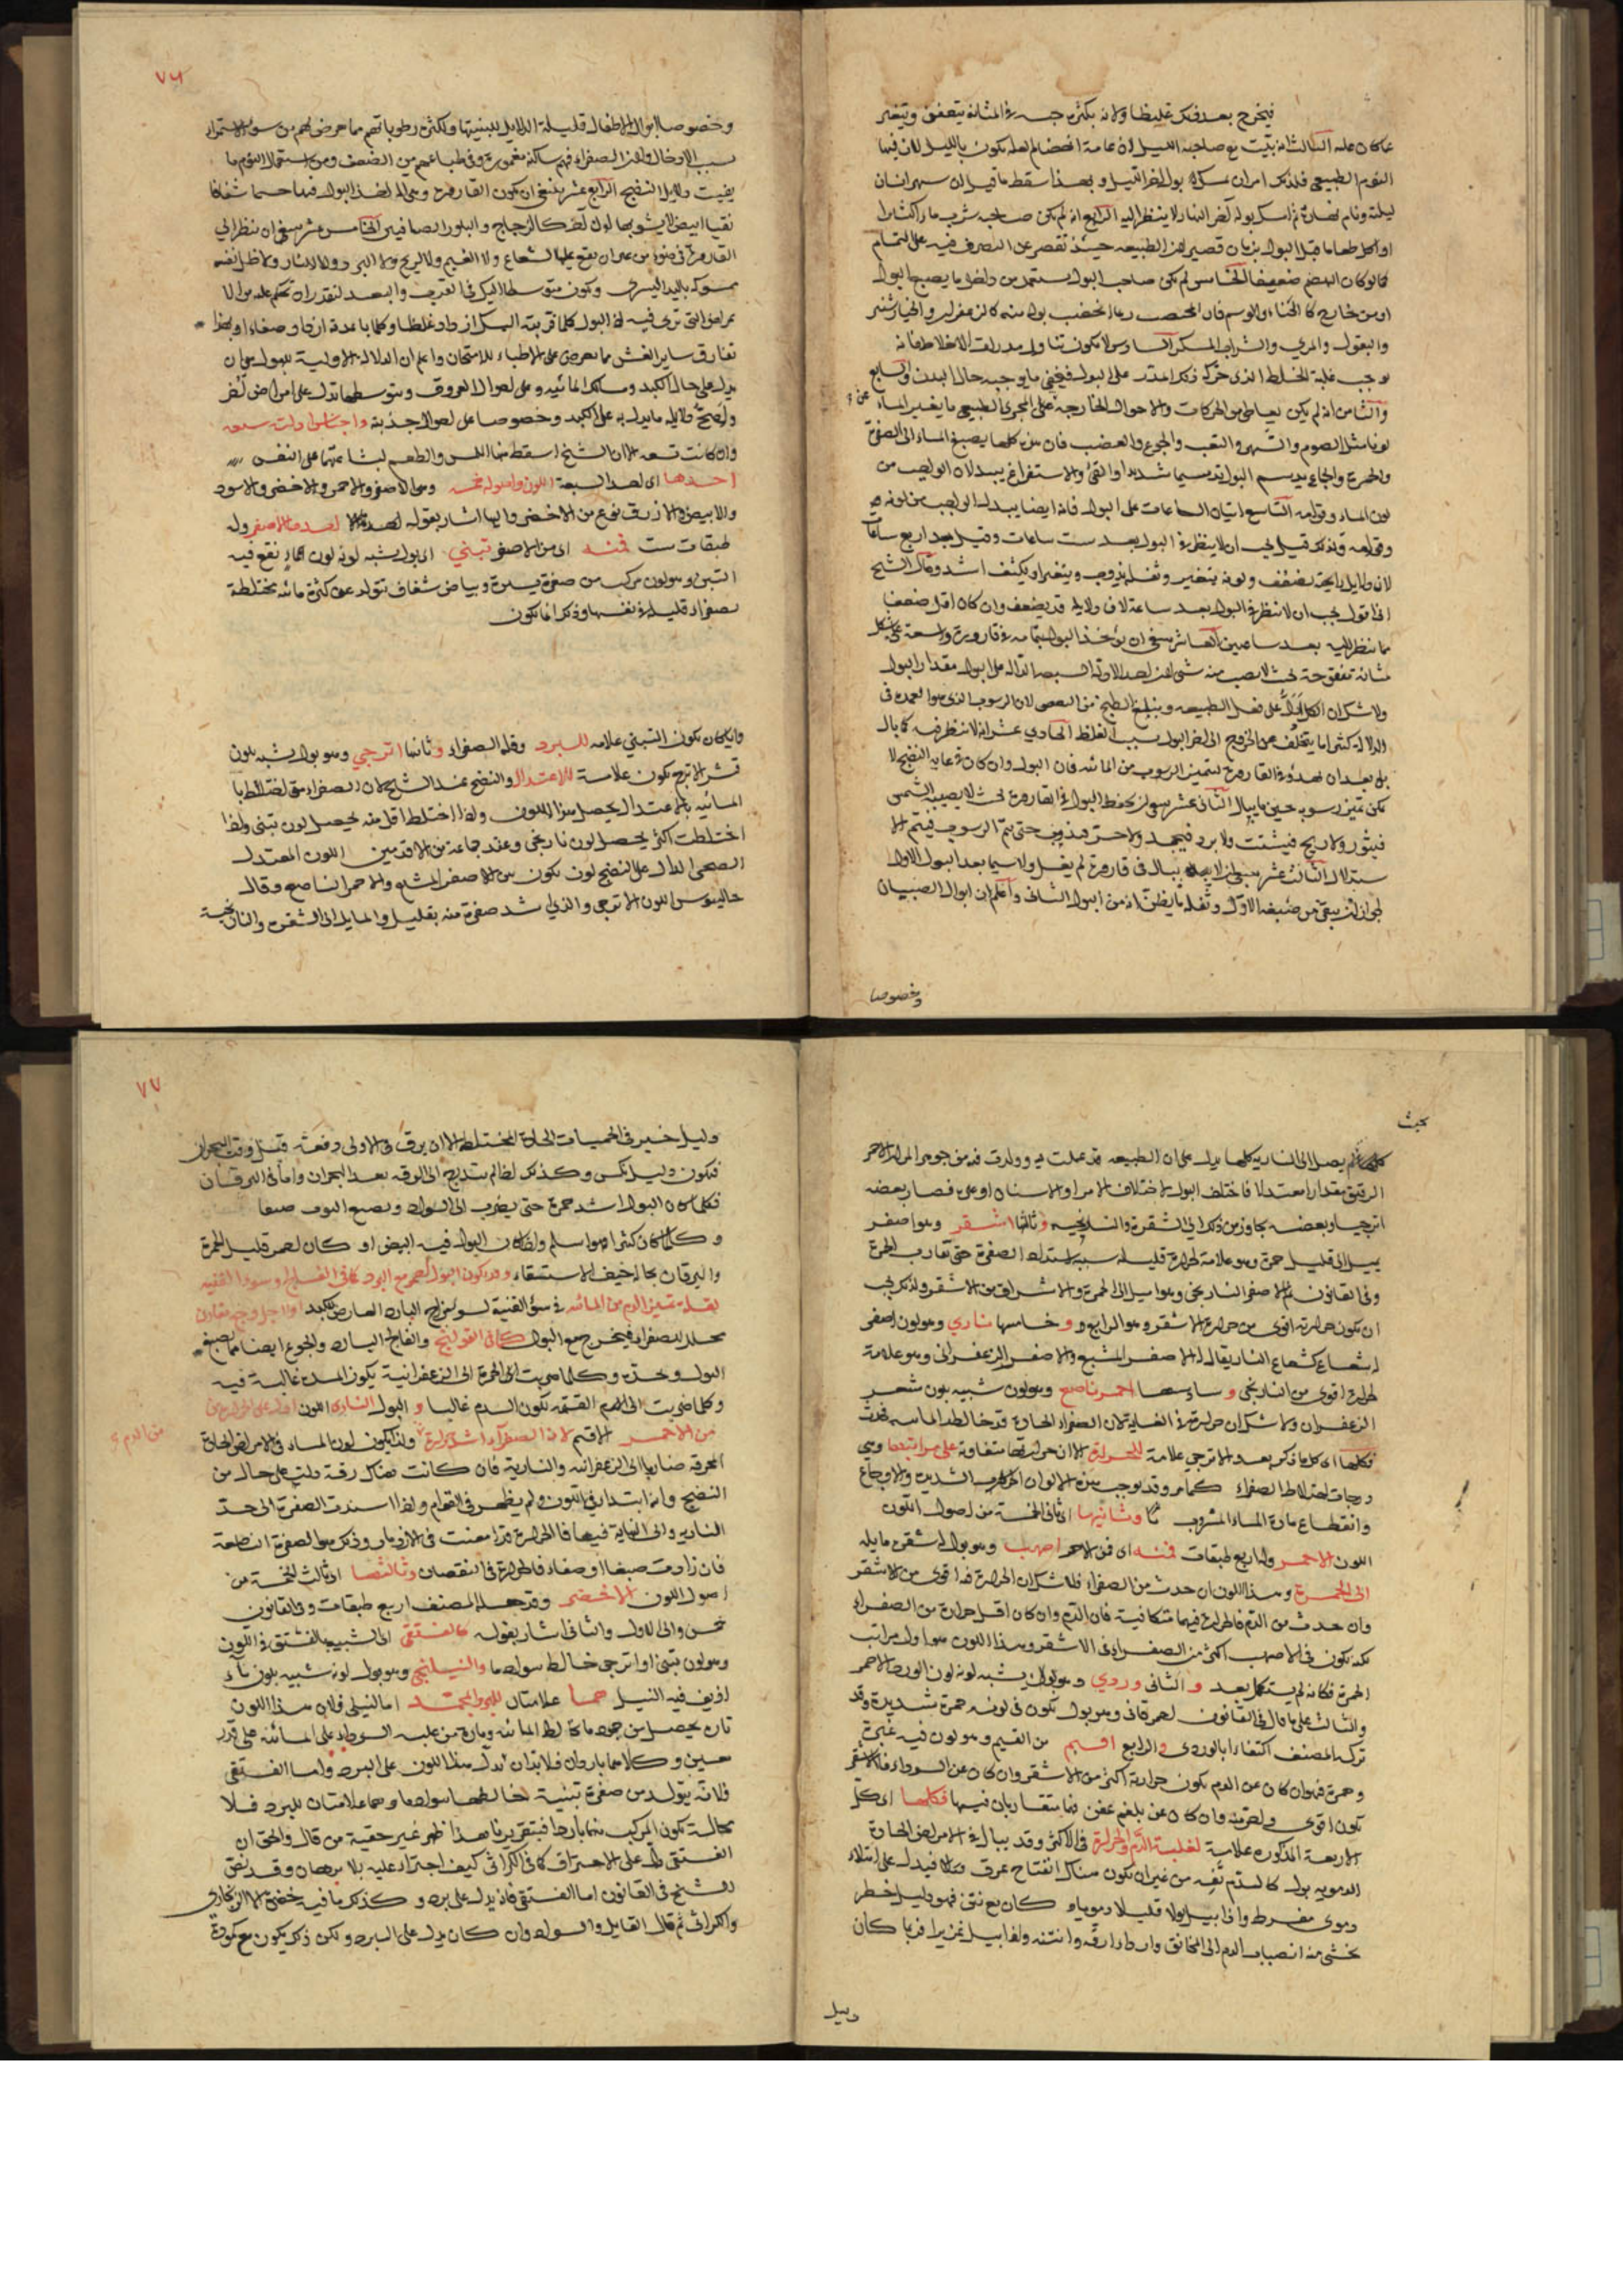 فيخرج بعد ذلك غليظا ولانه بكثرة حبسه في المثانة يتعفن ويتغير
عما كان عليه الثالث انه يبيت مع صاحبه الليل لان عامة الهضم انما يكون بالليل لان فيها
النوم الطبيعي فلذلك امر ان يمسك بول اخر الليل وبهذا سقط ما قيل ان سهر انسان
ليلته ونام نهاره ثم امسك بوله آخر النهار لا ينظر اليه الرابع ان لم يكن صاحبه شرب ماء كثيرا
او اكل طعاما قبل البول بزمان قصير لان الطبيعة حينئذ تقصر عن التصرف فيه على التمام
كما لو كان الهضم ضعيفا الخامس لم يكن صاحب البول يستعمل من داخل ما يصبغ البول
او من خارج كالحناء والوسم فان المختضب ربما انخضب بوله منه كالزعفران والخيار شنبر
والبقول والمري والشراب المسكر السادس لا يكون تناول مدرات الاخلاط فانه
يوجب غلبة الخلط الذي حركه ذلك المدر على البول فيخفي ما يوجبه حال البدن والسابع
والثامن ان لم يكن تعاطى من الحركات والاحوال الخارجة على المجرى الطبيعي ما يغير الماء
لونا مثل الصوم والسهر والتعب والجوع والغضب فان هذه كلها يصبغ الماء الى الصفرة
والحمرة والجماع يدسم البول تدسيما شديدا والقيء والاستفراغ يبدلان الواجب من
لون الماء وقوامه التاسع اتيان الساعات على البول فانه ايضا يبدل الواجب من لونه
وقوامه ولذلك قيل يجب ان لا ينظر في البول بعد ست ساعات وقيل بعد اربع ساعات
لان دلايل رايحته تضعف ولونه يتغير وثفله يذوب ويتغير او يكثف اشد وقال الشيخ
اني اقول يجب ان لا ينظر في البول بعد ساعة لان دلايله قد يضعف وان كان اقل ضعفا
مما ينظر اليه بعد ساعتين العاشر ينبغي ان يؤخذ البول بتمامه في قارورة واسعة على شكل
مثانة تنفق حتى لا يصب منه شيء
ولا شك ان الكل ادل على فعل الطبيعة
الدلالة كثيرا ما يتخلف عن الخروج الى اخر البول بسبب الغلظ الحادي عشر انه لا ينظر فيه كما يبال
بل بعد ان يهدأ في القارورة ليتميز الرسوب من المائية فان البول وان كان في غاية النضج لا
يمكن تميز رسوبه حين ما يبال الثاني عشر ينبغي ان يحفظ البول في القارورة بحيث لا يصيبه الشمس
فيثور ولا ريح فيتشتت ولا برد فيجمد ولا حر فيذوب حتى يتم الرسوب فيتم الا
ستدلال الثالث عشر ينبغي ان لا يبال في قارورة لم يغسل ولا سيما بعد البول الاول
لجواز ان يبقى من صبغه الاول وثفله ما يظن انه من البول الثاني واعلم ان ابوال الصبيان
وخصوصا
٧٦
وخصوصا ابوال الاطفال قليلة الدلايل للبنيتها ولكثرة رطوباتهم مما عرض لهم من سوء الاستمراء
بسبب الادخال ولان الصفراء فيهم ساكنة مغمورة وفي طباعهم من الضعف ومن استعمال النوم ما
يفيت دلايل النضج الرابع عشر ينبغي ان يكون القارورة وهي آلة لاخذ البول فيها جسما شفافا
نقيا ابيض لا يشوبها لون آخر كالزجاج والبلور الصافيين الخامس عشر ينبغي ان ينظر الى
القارورة في ضوء من غير ان يقع عليها الشعاع ولا الغيم ولا الريح ولا البرد ولا النار
يمسكه باليد اليسرى ويكون متوسطا اليك في القرب والبعد
لان البول كلما قربته اليك ازداد غلظا وكلما باعدته ازداد صفاء وبهذا
تفارق ساير الغش مما يعرض على الاطباء للامتحان واعلم ان الدلالة الاولية للبول هي ان
يدل على حال الكبد ومسالك المائية وعلى احوال العروق وبتوسطها تدل على امراض اخر
واصح دلايله ما يدل به على الكبد وخصوصا على احوال حدبته واجناس ادلته سبعة
وان كانت تسعة الا ان الشيخ اسقط منها اللمس والطعم لبشاعتهما على النفس
احدها اي احد السبعة اللون واصوله خمسة وهي الاصفر والاحمر والاخضر والاسود
والابيض والازرق نوع من الاخضر واليها اشار بقوله احدها الاصفر وله
طبقات ست فمنه اي من الاصفر تبني اي بول يشبه لونه لون الماء نقع فيه
التبن وهو لون مركب من صفرة يسيرة وبياض شفاف يتولد عن كثرة مائية مختلطة
بصفراء قليلة في نفسها وذكر انما يكون
وانما كان يكون التبني علامة للبرد وقلة الصفراء وثانيها اترجي وهو بول شبيه بلون
قشر الاترج يكون علامة للاعتدال والنضج عند الشيخ لان الصفراء متى اختلط بها
المائية بالاعتدال يحصل هذا اللون واذا اختلط اقل منه يحصل لون تبني واذا
اختلطت اكثر يحصل لون نارنجي وعند جماعة من الاقدمين اللون المعتدل
الصحي الدال على النضج لون يكون بين الاصفر المشبع والاحمر الناصع وقال
جالينوس اللون الاترجي والذي اشد صفرة منه بقليل والمايل الى الشقرة والنارنجية
بحث
كلها ثم يصل الى النارية كلها يدل على ان الطبيعة قد عملت فيه وولدت فيه من جوهر المرار الاحمر
الرقيق مقدارا معتدلا فاختلف البول لاختلاف الامزاج والاسنان او غير فصار بعضه
اترجيا وبعضه يجاوز من ذلك الى الشقرة والنارنجية وثالثها اشقر وهو اصفر
يميل الى قليل حمرة وهو علامة لحرارة قليلة سببه اشتداد الصفرة حتى تقارب الحمرة
وفي القانون ثم الاصفر النارنجي وهو اميل الى الحمرة والاشراق من الاشقر ولذلك يجب
ان يكون حرارته اقوى من حرارة الاشقر وهو الرابع وخامسها ناري وهو لون اصفر
له شعاع كشعاع النار يقال له الاصفر المشبع والاصفر الزعفراني وهو علامة
لحرارة اقوى من النارنجي وسادسها احمر ناصع وهو لون شبيه بلون شعر
الزعفران ولا شك ان حرارته في الغاية لان الصفراء الحادة قد خالطه المائية
فكلها اي كل ما ذكر بعد الاترجي علامة للحرارة الا ان حرارتها متفاوتة على مراتبها وهي
درجات اختلاط الصفراء كما مر وقد يوجب هذه الالوان الحركات الشديدة والاوجاع
وانقطاع مادة الماء المشروب وثانيها اي ثاني الخمسة من اصول اللون
اللون الاحمر وله اربع طبقات فمنه اي فمن الاحمر اصهب وهو بول اشقر مايله
الى الحمرة وهذا اللون ان حدث من الصفراء فلا شك ان الحرارة فيه اقوى من الاشقر
وان حدث من الدم فالحرارة فيهما متكافية فان الدم وان كان اقل حرارة من الصفراء
لكنه يكون في الاصهب اكثر من الصفراء في الاشقر وهذا اللون هو اول مراتب
الحمرة فكانه لم يستكمل بعد والثاني وردي وهو بول يشبه لونه لون الورد الاحمر
والثالث على ما قال في القانون احمر قاني وهو بول يكون في لونه حمرة شديدة وقد
تركه المصنف اكتفاء بالوردي والرابع اقتم من القتم وهو لون فيه غبرة
وحمرة فهو ان كان عن الدم يكون حرارته اكثر من الاشقر وان كان عن السوداء فالاشقر
يكون اقوى واحر منه وان كان عن بلغم عفن فهما متقاربان فيها فكلها اي كل
الاربعة المذكورة علامة لغلبة الدم والحرارة في الاكثر وقد يبال في الامراض الحادة
الدموية بول كالدم نفسه من غير ان يكون هناك انفتاح عرق فيدل على امتلاء
دموي مفرط واذا بيل بولا قليلا دمويا وكان مع نتن فهو دليل خطر
يخشى منه انصباب الدم الى المخانق واردأه ارقه وانتنه واذا بيل غزيرا فربما كان
دليل
٧٧
دليل خير في الحميات الحادة المختلطة الا ان يرق في الاولى دفعة قبل وقت البحران
فيكون دليل نكس وكذلك اذا لم يتدرج الى الرقة بعد البحران واما في اليرقان
فكلما كان البول اشد حمرة حتى يضرب الى السواد ويصبغ الثوب صبغا
وكلما كان كثيرا فهو اسلم واذا كان البول فيه ابيض او كان احمر قليل الحمرة
واليرقان بحاله خيف الاستسقاء وقد يكون البول احمر مع البرد كما في الفالج او سوء القنية
لقلة تميز الدم من المائية في سوء القنية لسوء مزاج البارد العارض للكبد او لاجل وجع مقارن
محلل للصفراء فيخرج مع البول كما في القولنج والفالج البارد والجوع ايضا مما يصبغ
البول ويحده وكلما ضربت الى الحمرة الى الزعفرانية يكون المرة غالبة فيه
وكلما ضربت الى الحمرة القتمة يكون الدم غالبا والبول الناري اللون ادل على الحرارة
من الاحمر الاقتم لان الصفراء اشد حرارة ولذا يكون لون الماء في الامراض الحادة
من الدم
المحرقة ضاربا الى الزعفرانية والنارية فان كانت هناك رقة دلت على حال من
النضج وانه ابتدأ في اللون ولم يظهر في القوام واذا اشتدت الصفرة الى حد
النارية والى النهاية فيها فالحرارة قد امعنت في الازدياد وذلك هو الصفرة الناصعة
فان زادت صبغا وصفاء فالحرارة في النقصان وثالثها اي ثالث الخمسة من
اصول اللون الاخضر وقد جعله المصنف اربع طبقات وفي القانون
خمس والى الاول والثاني اشار بقوله كالفستقي اي الشبيه بالفستق في اللون
وهو لون تبني او اترجي خالطه سواد ما والنيلنجي وهو بول لونه شبيه بلون ماء
اذيف فيه النيل هما علامتان للبرد المجمد اما النيلي فلان هذا اللون
تارة يحصل من جمود ما خالط المائية وتارة من غلبة السوداء على المائية على قدر
حسين وكلاهما باردان فلا بد ان يدل هذا اللون على البرد واما الفستقي
فلانه يتولد من صفرة تبنية خالطها سواد ما وهما علامتان للبرد فلا
محالة يكون المركب منهما باردا فبتقريرنا هذا ظهر غير حقية من قال والحق ان
الفستقي دل على الاحتراق كما في الكراثي كيف اجترأ عليه بلا برهان وقد نص
الشيخ في القانون اما الفستقي فانه يدل على برد وكذلك ما فيه خضرة الا الزنجاري
والكراثي ثم قال القايل والسواد وان كان يدل على البرد ولكن ذلك يكون مع كمودة